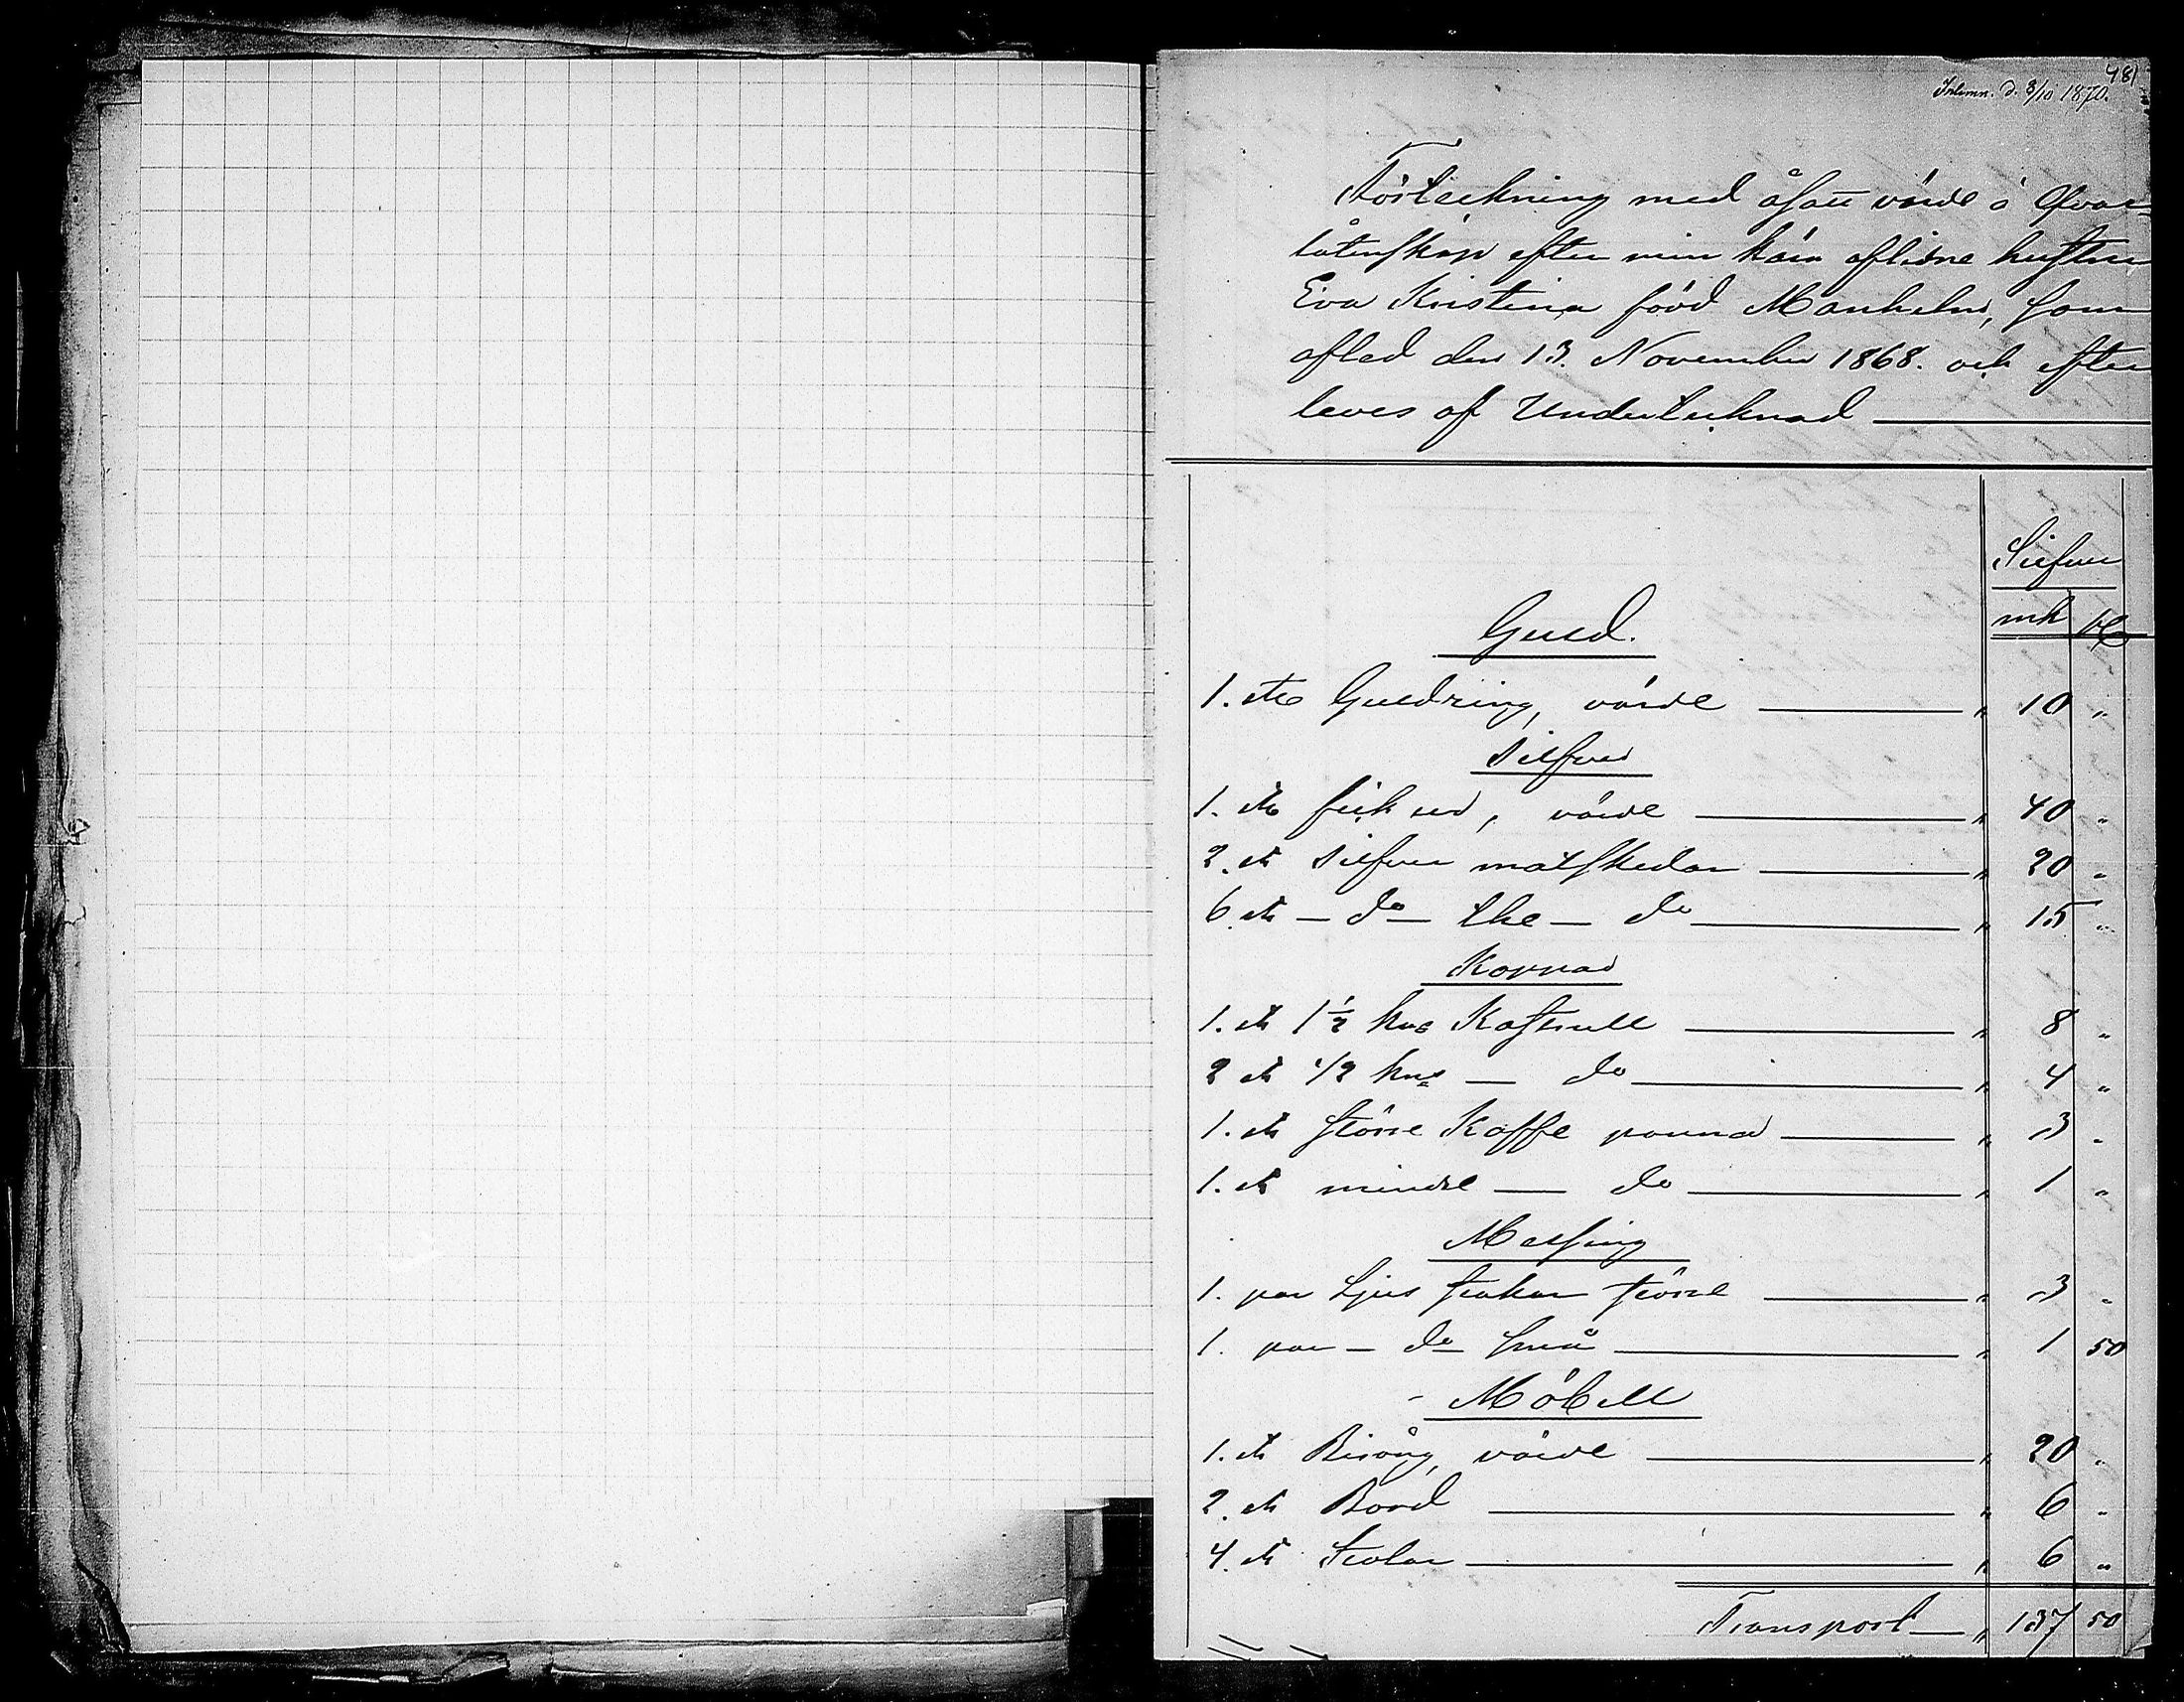 481
Inlemn. d. 3/10 1870.
Förteckning med åsatt värde å Qvar-
låtenskap efter min kära aflidne hustru
Eva Kristina född Manhelm, som
afled den 13. November 1868. och efter
leves af Undertecknad
Silfver
mk
Guld.
1. st. Guldring, värde " 10 "
Silfver
1. st fick ur, värde " 40 "
2. st Silfver matskedar " 20 "
6. st - do the - do " 15 "
Koppar
1. st 1 1/2 kns Kastrull " 8 "
2 st 1/2 kns - do " 4 "
1. st större Kaffe panna " 3 "
1. st mindre - do " 1 "
Messing
1. par Ljus stakar större " 3 "
1. par - do små " 1 50
Möbell
1. st Birång, värde " 20 "
2. st Bord " 6 "
4. st Stolar " 6 "
Transport " 137 50